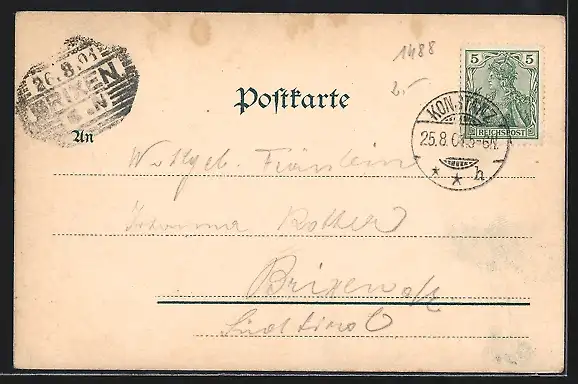 26.8.01
BRIXEN
N
1488
2,-
5 5
REICHSPOST
KONSTANZ
25.8.01.5-6N.
* * h
Postkarte
An
Fräulein
Johanna
Brixen
Südtirol